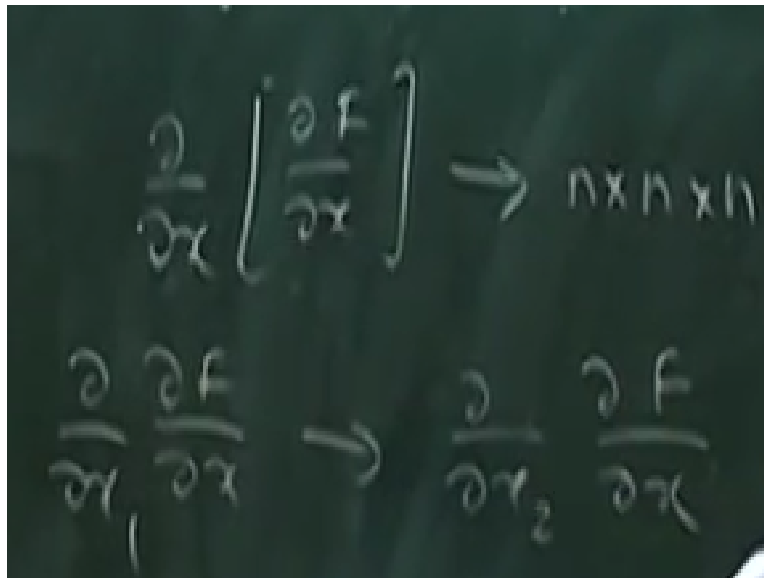 ∂/∂x [∂F/∂x] → n×n×n
∂/∂x₁ ∂F/∂x → ∂/∂x₂ ∂F/∂x